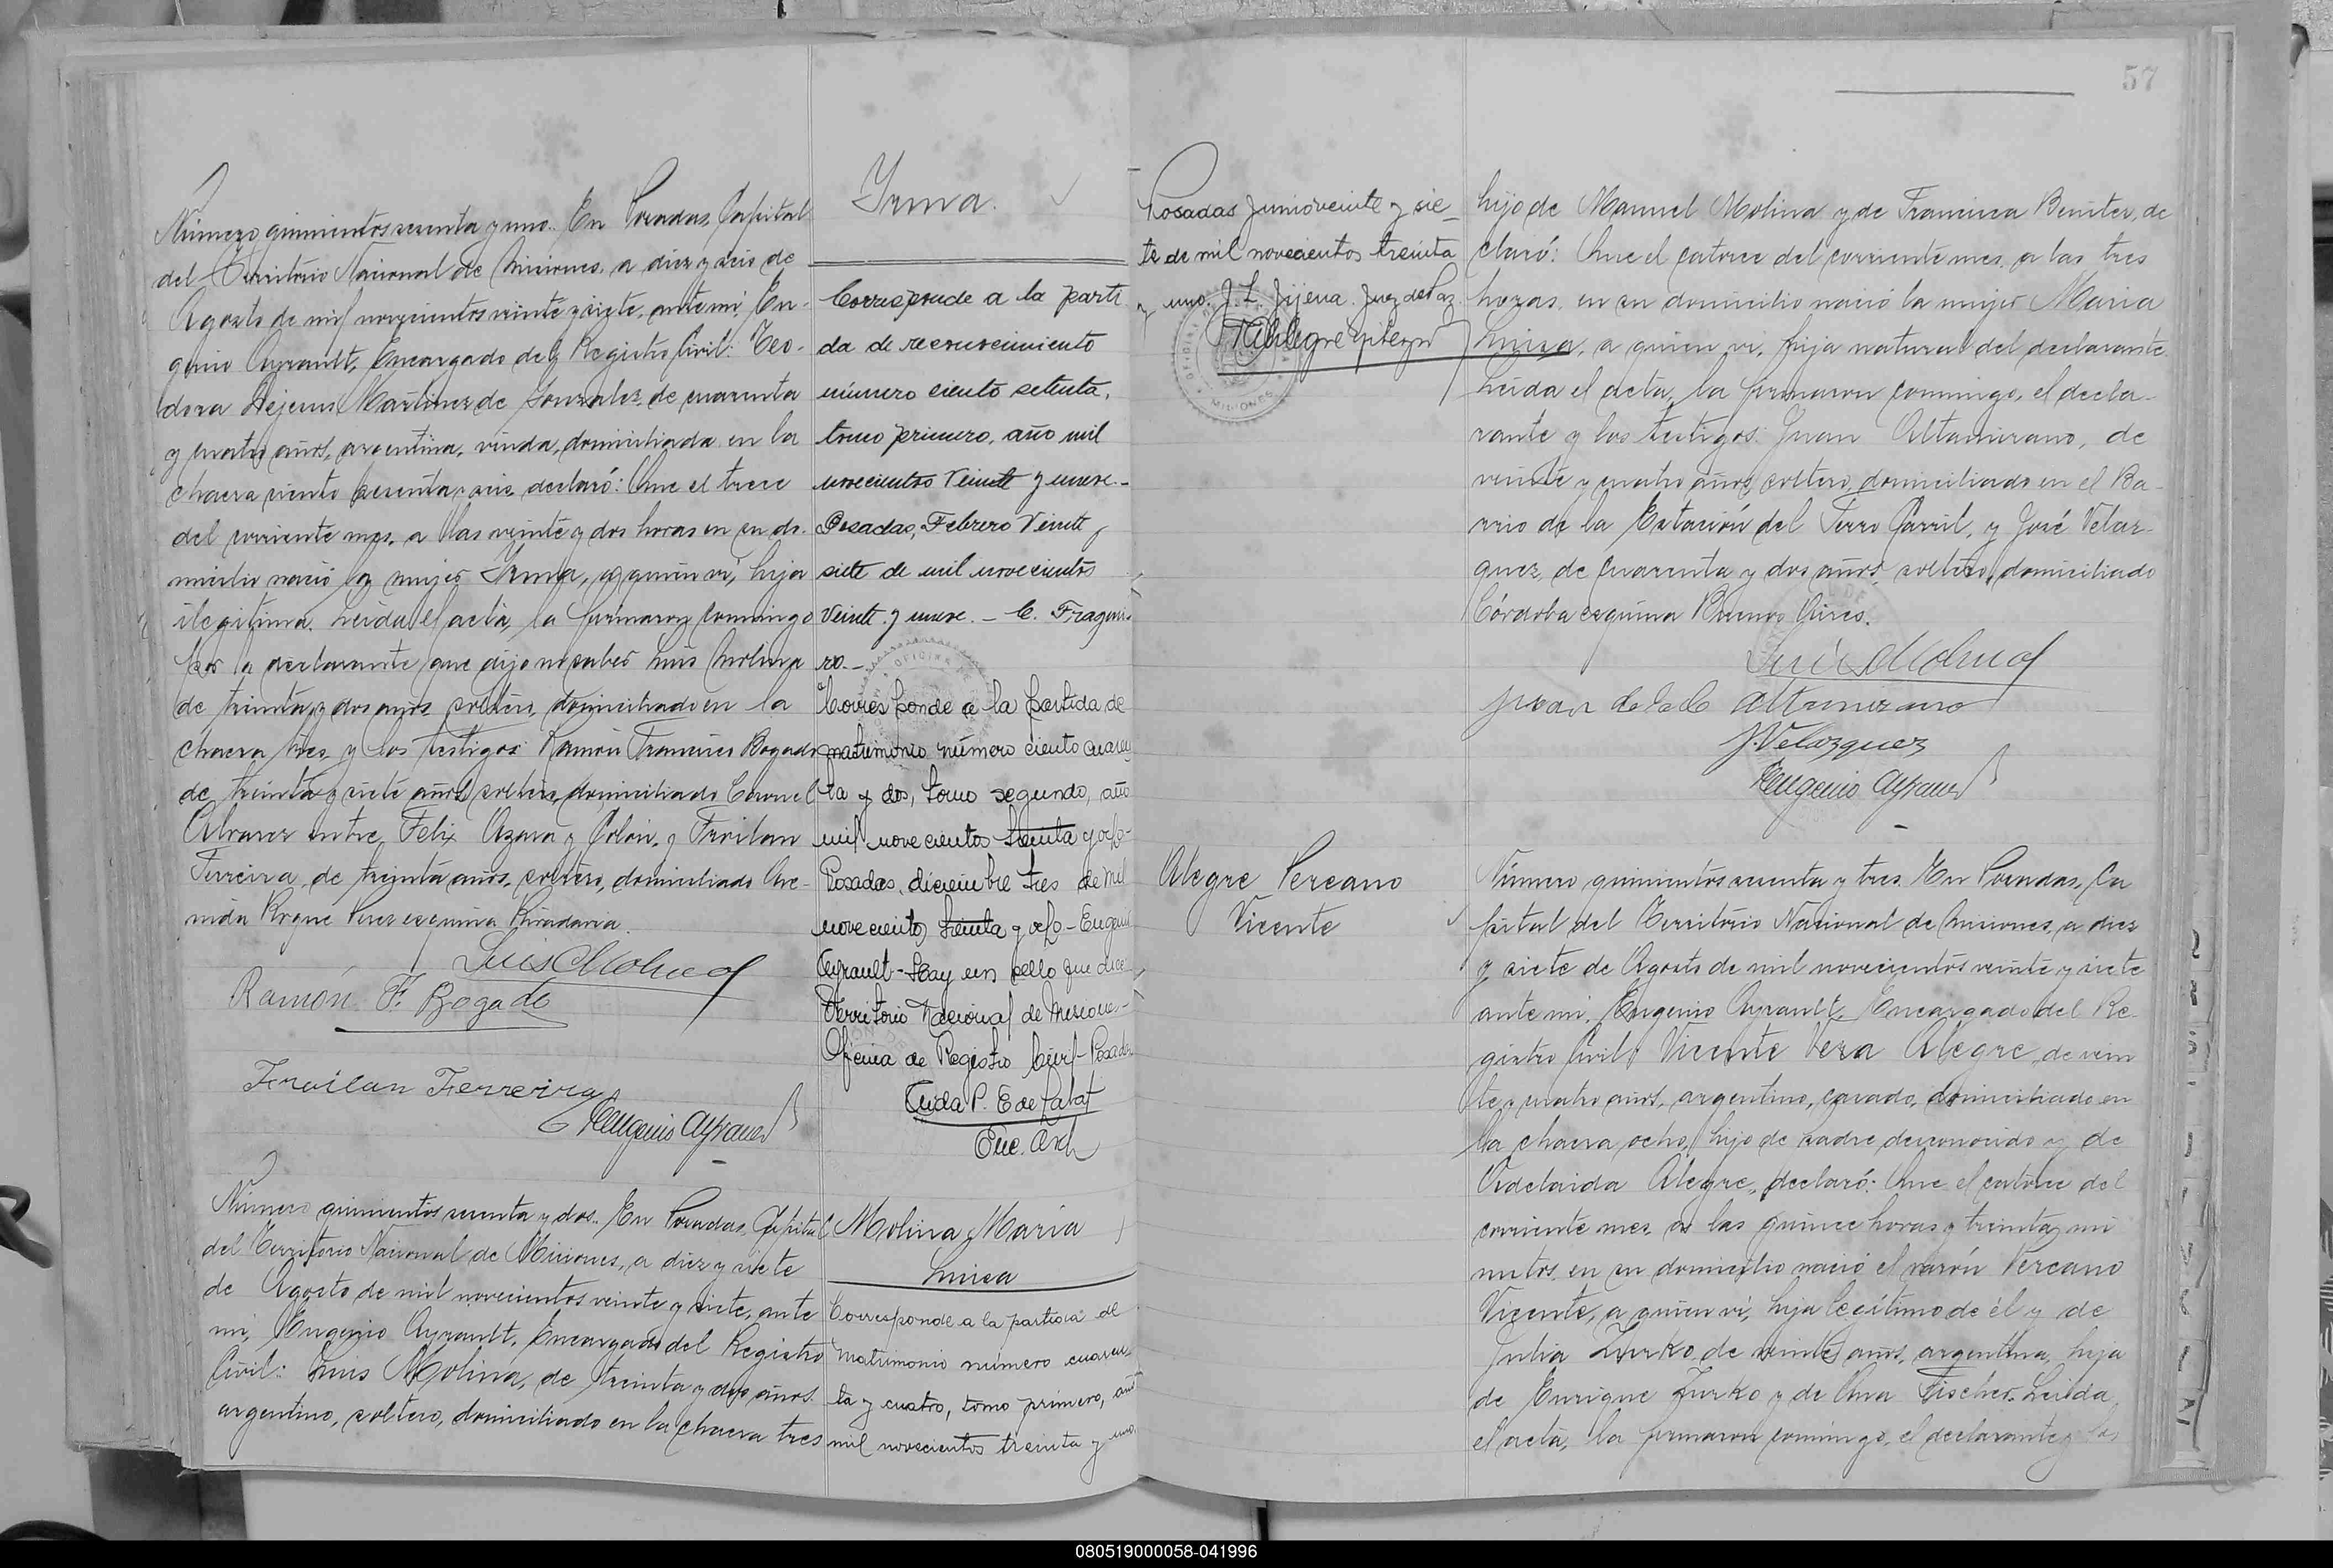 57
Número quinientos sesenta y uno. En Posadas, Capital
del Territorio Nacional de Misiones, a diez y seis de
Agosto de mil novecientos veinte y siete, ante mí, Eu-
genio Ayrault, Encargado del Registro Civil: Teo-
dora Dejesus Martinez de Gonzales, de cuarenta
y cuatro años, argentina, viuda, domiciliada en la
chacra ciento sesenta y seis, declaró: Que el trece
del corriente mes, a las veinte y dos horas en su do-
micilio nació la mujer Irma, a quien ví, hija
ilegitima. Leida el acta, la firmaron conmigo
por la declarante que dijo no saber Luis Molina
de treinta y dos años, soltero, domiciliado en la
chacra tres, y los testigos: Ramón Francisco Bogado
de treinta y siete años, soltero, domiciliado Coronel
Alvarez entre Felix Azara y Colón, y Froilan
Ferreira, de treinta años, soltero, domiciliado Ave-
nida Roque Perez esquina Rivadavia.
Luis Molina
Ramón F. Bogado
Froilan Ferreira
Eugenio Ayrault
Irma.
Corresponde a la parti
da de reconocimiento
número ciento setenta,
tomo primero, año mil
novecientos veinte y nueve.-
Posadas, Febrero Veinte y
siete de mil novecientos
veinte y nueve. - C. Fraguei-
ro.-
Corresponde a la partida de
matrimonio número ciento cuaren
ta y dos, tomo segundo, año
mil novecientos treinta y ocho-
Posadas, diciembre tres de mil
novecientos treinta y ocho - Eugenio
Ayrault - Hay un sello que dice
Territorio Nacional de Misiones-
Oficina de Registro Civil - Posadas
Enc. Arch
Número quinientos sesenta y dos. En Posadas, Capital
del Territorio Nacional de Misiones, a diez y siete
de Agosto de mil novecientos veinte y siete, ante
mí, Eugenio Ayrault, Encargado del Registro
Civil: Luis Molina, de treinta y dos años,
argentino, soltero, domiciliado en la chacra tres
Molina Maria
Luisa
Corresponde a la partida de
matrimonio número cuaren-
ta y cuatro, tomo primero, año
mil novecientos treinta y uno.
Posadas Junio veinte y sie-
te de mil novecientos treinta
y uno. J. L. Jijena. Juez de Paz
hijo de Manuel Molina y de Francisca Benitez, de
claró: Que el catorce del corriente mes, a las tres
horas, en su domicilio nació la mujer Maria
Luisa, a quien ví, hija natural del declarante.
Leida el acta, la firmaron conmigo, el decla-
rante y los testigos: Juan Altamirano, de
veinte y cuatro años, soltero, domiciliado en el Ba-
rrio de la Estación del Ferro Carril, y José Velaz-
quez, de cuarenta y dos años, soltero, domiciliado
Córdoba esquina Buenos Aires.
Luis Molina
Juan de la C Altamirano
J. Velazquez
Eugenio Ayrault
Alegre Percano
Vicente
Número quinientos sesenta y tres. En Posadas, Ca
pital del Territorio Nacional de Misiones, a diez
y siete de Agosto de mil novecientos veinte y siete
ante mí, Eugenio Ayrault, Encargado del Re-
gistro Civil: Vicente Vera Alegre, de vein
te y cuatro años, argentino, casado, domiciliado en
la chacra ocho, hijo de padre desconocido y de
Adelaida Alegre, declaró: Que el catorce del
corriente mes, a las quince horas y treinta mi
nutos, en su domicilio nació el varón Percano
Vicente, a quien ví, hijo legítimo de él y de
Julia Zurko, de veinte años, argentina, hija
de Enrique Zurko y de Ana Fischer. Leida
el acta, la firmaron conmigo, el declarante y los
080519000058-041996